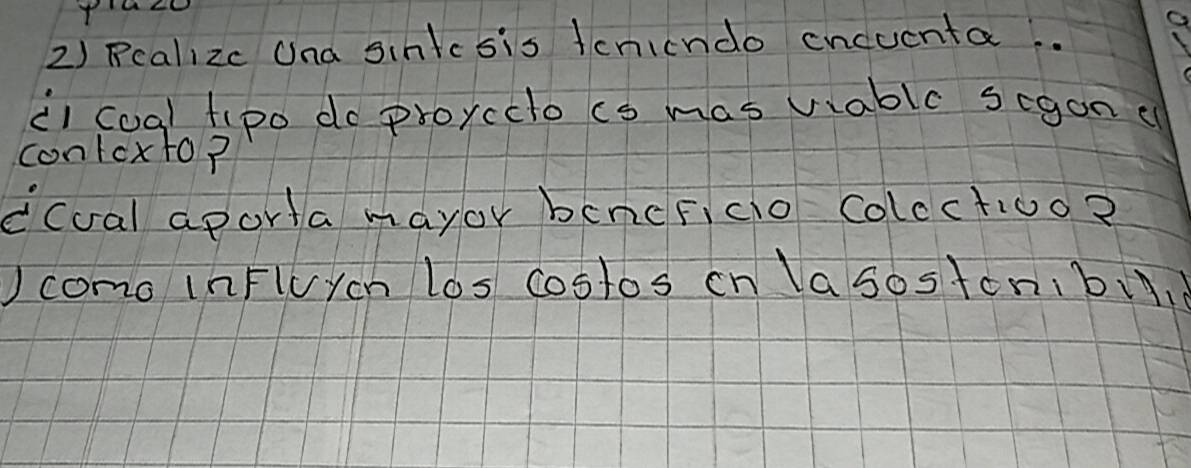 plazo
2) Realize una sintesis teniendo encuenta :.
¿ cual tipo de proyecto es mas viable segun el
contexto?
¿cual aporta mayor beneficio colectivo?
) como influyen los costos en la sostenibilid